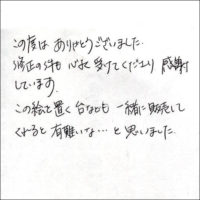 この度は ありがとうございました.
修正の件も 心よく 受けてくださり 感謝
しています.
この絵を置く 台なども 一緒に販売して
くれると 有難いな… と 思いました.